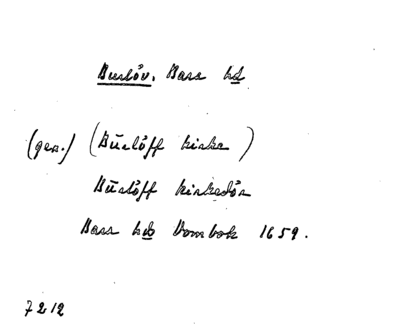 Burlöv, Bara hd
(gen.) (Būrlöff kirke)
Būrlöff kirkedör
Bara hd Dombok 1659.
7212